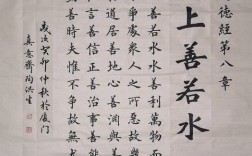 德經第八章
上善若水
善若水水善利萬物而
爭處衆人之所惡故
道居善地心善淵與善
言善信正善治事善
善時夫唯不爭故無尤
歲次癸卯仲秋於廈門
真意齋陶洪生